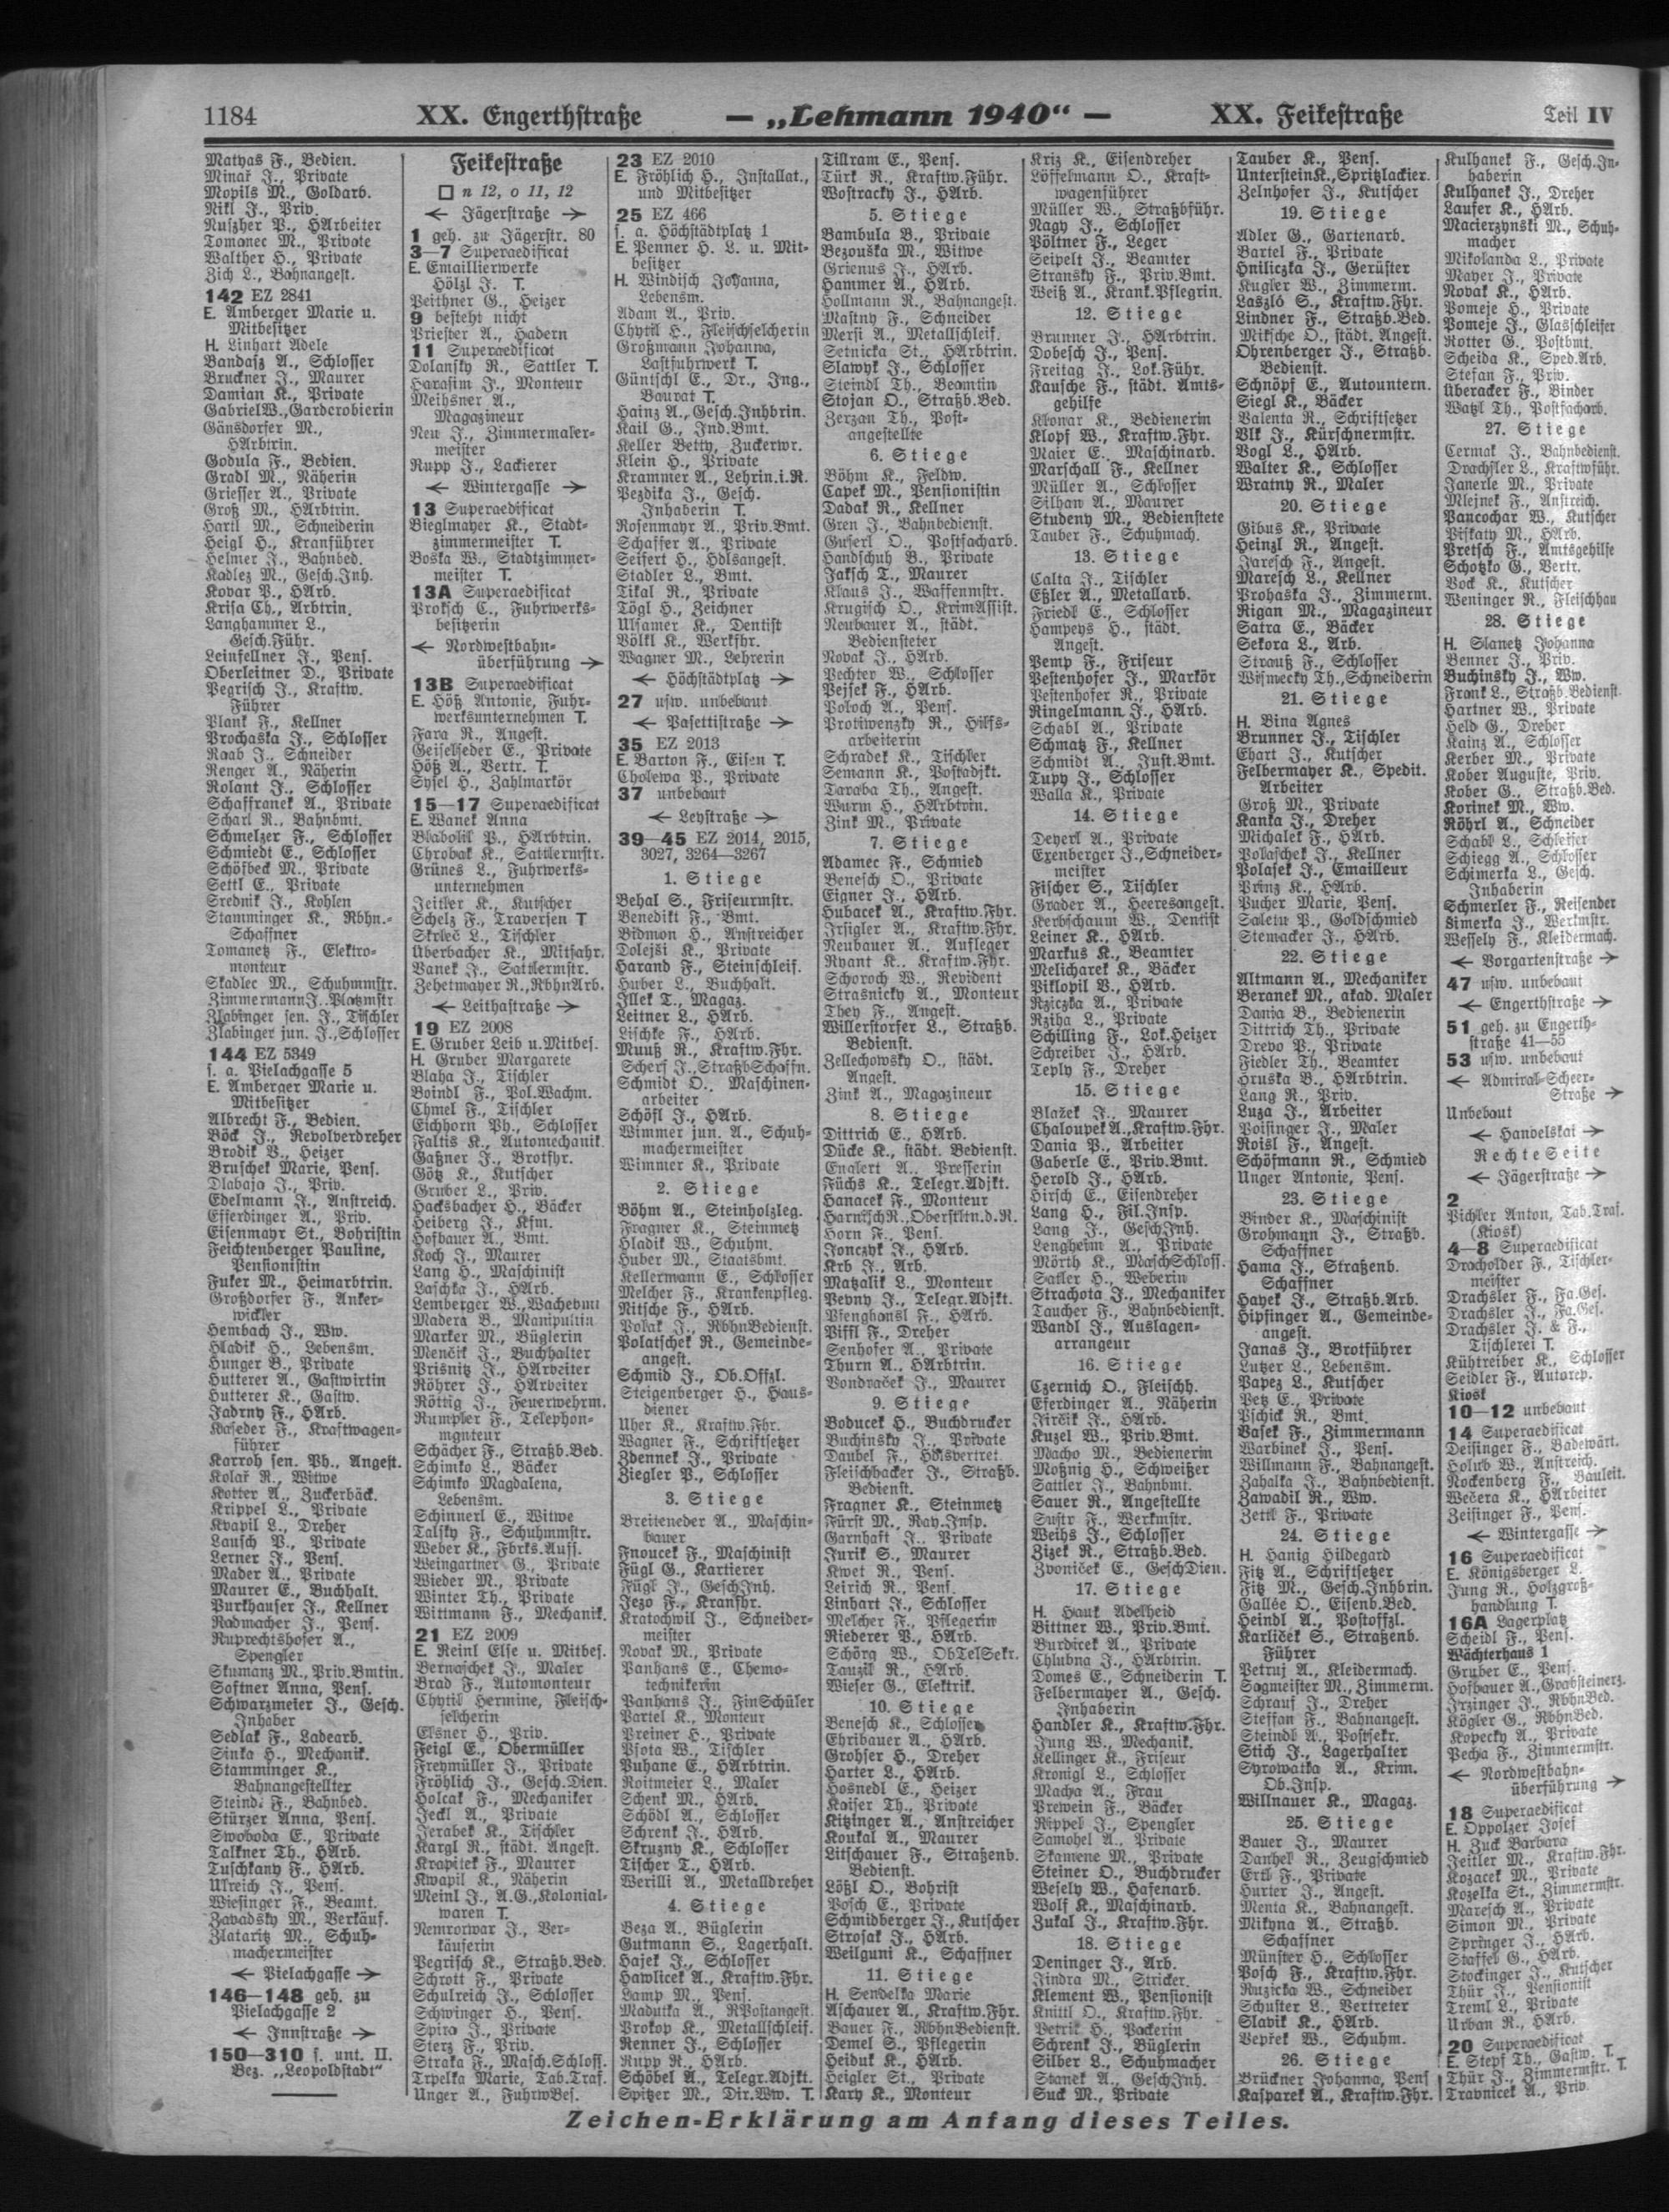 1184 XX. Engerthstraße — „Lehmann 1940“ — XX. Feikestraße Teil IV
Matyas F., Bedien.
Minař J., Private
Mopils M., Goldarb.
Nikl J., Priv.
Ruszher P., HArbeiter
Tomanec M., Private
Walther H., Private
Zich L., Bahnangest.
142 EZ 2841
E. Amberger Marie u.
Mitbesitzer
H. Linhart Adele
Bandasz A., Schlosser
Bruckner J., Maurer
Damian K., Private
Gabriel W., Garderobierin
Gänsdorfer M.,
HArbtrin.
Godula F., Bedien.
Gradl M., Näherin
Griesser A., Private
Groß M., HArbtrin.
Hartl M., Schneiderin
Heigl H., Kranführer
Helmer J., Bahnbed.
Kadlez M., Gesch.Inh.
Kovar P., HArb.
Krisa Ch., Arbtrin.
Langhammer L.,
Gesch.Führ.
Leinfellner J., Pens.
Oberleitner D., Private
Pegrisch J., Kraftw.
Führer
Plank F., Kellner
Prochaska J., Schlosser
Raab J., Schneider
Renger A., Näherin
Rolant J., Schlosser
Schaffranek A., Private
Scharl R., Bahnbmt.
Schmelzer F., Schlosser
Schmiedt E., Schlosser
Schöfbeck M., Private
Settl E., Private
Srednik J., Kohlen
Stamminger K., Rbhn.-
Schaffner
Tomanetz F., Elektro-
monteur
Skadlec M., Schuhmmstr.
Zimmermann J., Platzmstr
Zlabinger sen. J., Tischler
Zlabinger jun. J., Schlosser
144 EZ 5349
s. a. Pielachgasse 5
E. Amberger Marie u.
Mitbesitzer
Albrecht F., Bedien.
Böck J., Revolverdreher
Brodik V., Heizer
Bruschek Marie, Pens.
Dlabaja J., Priv.
Edelmann J., Anstreich.
Efferdinger A., Priv.
Eisenmayr St., Bohristin
Feichtenberger Pauline,
Pensionistin
Fuker M., Heimarbtrin.
Großdorfer F., Anker-
wickler
Hembach J., Ww.
Hladik H., Lebensm.
Hunger B., Private
Hutterer A., Gastwirtin
Hutterer K., Gastw.
Jadrny F., HArb.
Kaseder F., Kraftwagen-
führer
Karroh sen. Ph., Angest.
Kolař R., Witwe
Kotter A., Zuckerbäck.
Krippel L., Private
Kvapil L., Dreher
Lausch P., Private
Lerner J., Pens.
Mader A., Private
Maurer E., Buchhalt.
Purkhauser J., Kellner
Radmacher J., Pens.
Ruprechtshofer A.,
Spengler
Skumanz M., Priv.Bmtin.
Softner Anna, Pens.
Schwarzmeier J., Gesch.
Inhaber
Sedlak F., Ladearb.
Sinka H., Mechanik.
Stamminger K.,
Bahnangestellter
Steindl F., Bahnbed.
Stürzer Anna, Pens.
Swoboda E., Private
Talkner Th., HArb.
Tuschkany F., HArb.
Ulreich J., Pens.
Wiesinger F., Beamt.
Zavadsky M., Verkäuf.
Zlataritz M., Schuh-
machermeister
← Pielachgasse →
146—148 geh. zu
Pielachgasse 2
← Innstraße →
150—310 s. unt. II.
Bez. „Leopoldstadt“
Feikestraße
□ n 12, o 11, 12
← Jägerstraße →
1 geh. zu Jägerstr. 80
3—7 Superaedificat
E. Emaillierwerke
Hölzl J. T.
Peithner G., Heizer
9 besteht nicht
Priester A., Hadern
11 Superaedificat
Dolansky R., Sattler T.
Harasim J., Monteur
Meihsner A.,
Magazineur
Neu J., Zimmermaler-
meister
Rupp J., Lackierer
← Wintergasse →
13 Superaedificat
Bieglmayer K., Stadt-
zimmermeister T.
Boska W., Stadtzimmer-
meister T.
13A Superaedificat
Proksch C., Fuhrwerks-
besitzerin
← Nordwestbahn-
überführung →
13B Superaedificat
E. Höß Antonie, Fuhr-
werksunternehmen T.
Fara R., Angest.
Geiselseder E., Private
Höß A., Vertr. T.
Sysel H., Zahlmarkör
15—17 Superaedificat
E. Wanek Anna
Blabolil P., HArbtrin.
Chrobak K., Sattlermstr.
Grünes L., Fuhrwerks-
unternehmen
Jeitler K., Kutscher
Schelz F., Traversen T
Skrleč L., Tischler
Überbacher K., Mitfahr.
Vanek J., Sattlermstr.
Zehetmayer R., RbhnArb.
← Leithastraße →
19 EZ 2008
E. Gruber Leib u. Mitbes.
H. Gruber Margarete
Blaha J., Tischler
Boindl F., Pol.Wachm.
Chmel F., Tischler
Eichhorn Ph., Schlosser
Faltis K., Automechanik.
Gaßner J., Brotfhr.
Götz K., Kutscher
Gruber L., Priv.
Hacksbacher H., Bäcker
Heiberg J., Kfm.
Hofbauer A., Bmt.
Koch J., Maurer
Lang H., Maschinist
Laschka J., HArb.
Lemberger W., Wachebmt
Madera B., Manipultin
Marker M., Büglerin
Menčik J., Buchhalter
Prisnitz J., HArbeiter
Röhrer J., HArbeiter
Röttig J., Feuerwehrm.
Rumpler F., Telephon-
monteur
Schächer F., Straßb.Bed.
Schimko L., Bäcker
Schimko Magdalena,
Lebensm.
Schinnerl E., Witwe
Talsky F., Schuhmmstr.
Weber K., Fbrks.Aufs.
Weingartner G., Private
Wieder M., Private
Winter Th., Private
Wittmann F., Mechanik.
21 EZ 2009
E. Reinl Else u. Mitbes.
Bernaschek J., Maler
Brad F., Automonteur
Chytil Hermine, Fleisch-
selcherin
Elsner H., Priv.
Feigl E., Obermüller
Freymüller J., Private
Fröhlich J., Gesch.Dien.
Holcak F., Mechaniker
Jeckl A., Private
Jerabek K., Tischler
Kargl R., städt. Angest.
Krapilek F., Maurer
Kwapil K., Näherin
Meinl J., A.G., Kolonial-
waren T.
Nemrorwar J., Ver-
käuferin
Pegrisch K., Straßb.Bed.
Schrott F., Private
Schulreich J., Schlosser
Schwinger H., Pens.
Spira J., Private
Sterz F., Priv.
Straka F., Masch.Schloss.
Trpelka Marie, Tab.Traf.
Unger A., FuhrwBes.
23 EZ 2010
E. Fröhlich H., Installat.,
und Mitbesitzer
25 EZ 466
s. a. Höchstädtplatz 1
E. Penner H. L. u. Mit-
besitzer
H. Windisch Johanna,
Lebensm.
Adam A., Priv.
Chytil H., Fleischselcherin
Großmann Johanna,
Lastfuhrwerk T.
Güntschl E., Dr., Ing.,
Baurat T.
Hainz A., Gesch.Inhbrin.
Kail G., Ind.Bmt.
Keller Betty, Zuckerwr.
Klein H., Private
Krammer A., Lehrin.i.R.
Pezdika J., Gesch.
Inhaberin T.
Rosenmayr A., Priv.Bmt.
Schaffer A., Private
Seifert H., Hdlsangest.
Stadler L., Bmt.
Tikal R., Private
Tögl H., Zeichner
Ulsamer K., Dentist
Völkl K., Werkfhr.
Wagner M., Lehrerin
← Höchstädtplatz →
27 usw. unbebaut
← Pasettistraße →
35 EZ 2013
E. Barton F., Eisen T.
Cholewa P., Private
37 unbebaut
← Leystraße →
39—45 EZ 2014, 2015,
3027, 3264—3267
1. Stiege
Behal S., Friseurmstr.
Benedikt F., Bmt.
Bidmon H., Anstreicher
Dolejsi K., Private
Harand F., Steinschleif.
Huber L., Buchhalt.
Illek T., Magaz.
Leitner L., HArb.
Lischke F., HArb.
Muuß R., Kraftw.Fhr.
Scherf J., StraßbSchaffn.
Schmidt O., Maschinen-
arbeiter
Schöfl J., HArb.
Wimmer jun. A., Schuh-
machermeister
Wimmer K., Private
2. Stiege
Böhm A., Steinholzleg.
Fragner K., Steinmetz
Hladik W., Schuhm.
Huber M., Staatsbmt.
Kellermann E., Schlosser
Melcher F., Krankenpfleg.
Nitsche F., HArb.
Polak J., RbhnBedienst.
Polatschek R., Gemeinde-
angest.
Schmid J., Ob.Offzl.
Steigenberger H., Haus-
diener
Uher K., Kraftw.Fhr.
Wagner F., Schriftsetzer
Zdennek J., Private
Ziegler P., Schlosser
3. Stiege
Breiteneder A., Maschin-
bauer
Fnoucek F., Maschinist
Fügl G., Kartierer
Fügl J., GeschInh.
Jezo F., Kranfhr.
Kratochwil J., Schneider-
meister
Novak M., Private
Panhans E., Chemo-
technikerin
Panhans J., FinSchüler
Partel K., Monteur
Preiner H., Private
Psota W., Tischler
Puhane E., HArbtrin.
Roitmeier L., Maler
Schenk M., HArb.
Schödl A., Schlosser
Schrenk J., HArb.
Skruzny K., Schlosser
Tischer T., HArb.
Verilli A., Metalldreher
4. Stiege
Beza A., Büglerin
Gutmann S., Lagerhalt.
Hajek J., Schlosser
Hawlicek A., Kraftw.Fhr.
Lamp M., Pens.
Madutka A., RPostangest.
Prokop K., Metallschleif.
Renner J., Schlosser
Rupp R., HArb.
Schöbel A., Telegr.Adjkt.
Spitzer M., Dir.Ww. T.
Tillram E., Pens.
Türk R., Kraftw.Führ.
Wostracky J., HArb.
5. Stiege
Bambula B., Private
Bezouška M., Witwe
Grienus J., HArb.
Hammer A., HArb.
Hollmann R., Bahnangest.
Mastny F., Schneider
Mersi A., Metallschleif.
Setnicka St., HArbtrin.
Slawyk J., Schlosser
Steindl Th., Beamtin
Stojan O., Straßb.Bed.
Zerzan Th., Post-
angestellte
6. Stiege
Böhm K., Feldw.
Capek M., Pensionistin
Dadak R., Kellner
Gren J., Bahnbedienst.
Guserl O., Postfacharb.
Handschuh B., Private
Jaksch T., Maurer
Klaus J., Waffenmstr.
Krugisch O., KrimAssist.
Neubauer A., städt.
Bediensteter
Novak J., HArb.
Pechter W., Schlosser
Pejsek F., HArb.
Poloch A., Pens.
Protiwenzky R., Hilfs-
arbeiterin
Schradek K., Tischler
Semann K., Postadjkt.
Taraba Th., Angest.
Wurm H., HArbtrin.
Zink M., Private
7. Stiege
Adamec F., Schmied
Benesch O., Private
Eigner J., HArb.
Hubacek A., Kraftw.Fhr.
Irsigler A., Kraftw.Fhr.
Neubauer A., Aufleger
Ryant K., Kraftw.Fhr.
Schoroch W., Revident
Strasnicky A., Monteur
They F., Angest.
Willerstorfer L., Straßb.
Bedienst.
Zellechowsky O., städt.
Angest.
Zink A., Magazineur
8. Stiege
Dittrich E., HArb.
Dücke K., städt. Bedienst.
Englert A., Presserin
Füchs K., Telegr.Adjkt.
Hanacek F., Monteur
Harnisch R., Oberstltn.d.R.
Horn F., Pens.
Jonczyk F., HArb.
Krb J., Arb.
Matzalik L., Monteur
Pevny J., Telegr.Adjkt.
Pfenghansl F., HArb.
Piffl F., Dreher
Senhofer A., Private
Thurn A., HArbtrin.
Vondraček J., Maurer
9. Stiege
Boducek H., Buchdrucker
Buchinsky J., Private
Daubel F., Hdlsvertret.
Fleischhacker J., Straßb.
Bedienst.
Fragner K., Steinmetz
Fürst M., Ray.Insp.
Garnhaft J., Private
Jurik S., Maurer
Kwet R., Pens.
Leirich R., Pens.
Linhart J., Schlosser
Melcher F., Pflegerin
Riederer P., HArb.
Schörg W., ObTelSekr.
Tauzil R., HArb.
Wieser G., Elektrik.
10. Stiege
Benesch K., Schlosser
Ehribauer A., HArb.
Grohser H., Dreher
Harter L., HArb.
Hosnedl E., Heizer
Kaiser Th., Private
Kitzinger A., Anstreicher
Koukal A., Maurer
Litschauer F., Straßenb.
Bedienst.
Lößl O., Bohrist
Posch E., Private
Schmidberger J., Kutscher
Strojak J., HArb.
Weilguni K., Schaffner
11. Stiege
H. Sendelka Marie
Aschauer A., Kraftw.Fhr.
Bauer F., RbhnBedienst.
Demel S., Pflegerin
Heiduk K., HArb.
Heigler St., Private
Kary K., Monteur
Kriz K., Eisendreher
Löffelmann O., Kraft-
wagenführer
Müller W., Straßbführ.
Nagy J., Schlosser
Pöltner F., Leger
Seipelt J., Beamter
Stransky F., Priv.Bmt.
Weiß A., Krank.Pflegrin.
12. Stiege
Brunner J., HArbtrin.
Dobesch J., Pens.
Freitag J., Lok.Führ.
Kausche F., städt. Amts-
gehilfe
Klonar K., Bedienerin
Klopf W., Kraftw.Fhr.
Maier E., Maschinarb.
Marschall F., Kellner
Müller A., Schlosser
Silhan A., Maurer
Studeny M., Bedienstete
Tauber F., Schuhmach.
13. Stiege
Calta J., Tischler
Eßler A., Metallarb.
Friedl E., Schlosser
Hampeys H., städt.
Angest.
Pemp F., Friseur
Pestenhofer J., Markör
Pestenhofer R., Private
Ringelmann J., HArb.
Schabl A., Private
Schmatz F., Kellner
Schmidt A., Just.Bmt.
Tupy J., Schlosser
Walla K., Private
14. Stiege
Deyerl A., Private
Exenberger J., Schneider-
meister
Fischer S., Tischler
Grader A., Heeresangest.
Kerbschaum W., Dentist
Leiner K., HArb.
Markus K., Beamter
Melicharek K., Bäcker
Piklopil B., HArb.
Rziczka A., Private
Rziha L., Private
Schilling F., Lok.Heizer
Schreiber J., HArb.
Teply F., Dreher
15. Stiege
Blažek J., Maurer
Chaloupek A., Kraftw.Fhr.
Dania P., Arbeiter
Gaberle E., Priv.Bmt.
Herold J., HArb.
Hirsch E., Eisendreher
Lang H., Fil.Insp.
Lang J., GeschInh.
Lengheim A., Private
Mörth K., MaschSchloss.
Satler H., Weberin
Strachota J., Mechaniker
Taucher F., Bahnbedienst.
Wandl J., Auslagen-
arrangeur
16. Stiege
Czernich O., Fleischh.
Eferdinger A., Näherin
Jirčik J., HArb.
Kuzel W., Priv.Bmt.
Macho M., Bedienerin
Moßnig H., Schweißer
Sattler J., Bahnbmt.
Sauer R., Angestellte
Sustr F., Werkmstr.
Weihs J., Schlosser
Zizek R., Straßb.Bed.
Zvoniček E., GeschDien.
17. Stiege
H. Hauk Adelheid
Bittner W., Priv.Bmt.
Burdicek A., Private
Chlubna J., HArbtrin.
Domes E., Schneiderin T.
Felbermayer A., Gesch.
Inhaberin
Handler K., Kraftw.Fhr.
Jung W., Mechanik.
Kellinger K., Friseur
Kronigl L., Schlosser
Macha A., Frau
Prewein F., Bäcker
Rippel J., Spengler
Samohel A., Private
Skamene M., Private
Steiner O., Buchdrucker
Wesely W., Hafenarb.
Wolf K., Maschinarb.
Zukal J., Kraftw.Fhr.
18. Stiege
Deninger J., Arb.
Jindra M., Stricker.
Klement W., Pensionist
Knittl O., Kraftw.Fhr.
Petrik H., Packerin
Schrenk J., Büglerin
Silber L., Schuhmacher
Stanek A., GeschInh.
Suck M., Private
Tauber K., Pens.
Unterstein K., Spritzlackier.
Zelnhofer J., Kutscher
19. Stiege
Adler G., Gartenarb.
Bartel F., Private
Hniliczka J., Gerüster
Kugler W., Zimmerm.
Laszló S., Kraftw.Fhr.
Lindner F., Straßb.Bed.
Miksche O., städt. Angest.
Ohrenberger J., Straßb.
Bedienst.
Schnöpf E., Autountern.
Siegl K., Bäcker
Valenta R., Schriftsetzer
Vlk J., Kürschnermstr.
Vogl L., HArb.
Walter K., Schlosser
Wratny R., Maler
20. Stiege
Gibus K., Private
Heinzl R., Angest.
Jaresch F., Angest.
Maresch L., Kellner
Prohaska J., Zimmerm.
Rigan M., Magazineur
Satra E., Bäcker
Sekora L., Arb.
Strauß F., Schlosser
Wismecky Th., Schneiderin
21. Stiege
H. Bina Agnes
Brunner J., Tischler
Ehart J., Kutscher
Felbermayer K., Spedit.
Arbeiter
Groß M., Private
Kanka J., Dreher
Michalek F., HArb.
Polaschek J., Kellner
Polasek J., Emailleur
Prinz K., HArb.
Pucher Marie, Pens.
Saletu P., Goldschmied
Stemacker J., HArb.
22. Stiege
Altmann A., Mechaniker
Beranek M., akad. Maler
Dania B., Bedienerin
Dittrich Th., Private
Drevo P., Private
Fiedler Th., Beamter
Hruska B., HArbtrin.
Lang R., Priv.
Luza J., Arbeiter
Poisinger J., Maler
Roisl F., Angest.
Schöfmann R., Schmied
Unger Antonie, Pens.
23. Stiege
Binder K., Maschinist
Grohmann J., Straßb.
Schaffner
Hama J., Straßenb.
Schaffner
Hayek J., Straßb.Arb.
Hipfinger A., Gemeinde-
angest.
Janas J., Brotführer
Lutzer L., Lebensm.
Papez L., Kutscher
Petz E., Private
Pschick R., Bmt.
Vasek F., Zimmermann
Warbinek J., Pens.
Willmann F., Bahnangest.
Zahalka J., Bahnbedienst.
Zawadil R., Ww.
Zettl F., Private
24. Stiege
H. Hanig Hildegard
Fitz A., Schriftsetzer
Fitz M., Gesch.Inhbrin.
Gallée O., Eisenb.Bed.
Heindl A., Postoffzl.
Karliček S., Straßenb.
Führer
Petruj A., Kleidermach.
Sagmeister M., Zimmerm.
Schrauf J., Dreher
Steffan F., Bahnangest.
Steindl A., Postsekr.
Stich J., Lagerhalter
Syrowatka A., Krim.
Ob.Insp.
Willnauer K., Magaz.
25. Stiege
Bauer J., Maurer
Danhel R., Zeugschmied
Ertl F., Private
Hurter J., Angest.
Menta K., Bahnangest.
Mikyna A., Straßb.
Schaffner
Münster H., Schlosser
Posch F., Kraftw.Fhr.
Ruzicka W., Schneider
Schuster L., Vertreter
Slavik K., HArb.
Vepřek W., Schuhm.
26. Stiege
Brückner Johanna, Pens
Kasparek A., Kraftw.Fhr.
Kulhanek F., Gesch.In-
haberin
Kulhanek J., Dreher
Laufer K., HArb.
Macierzynski M., Schuh-
macher
Mikolanda L., Private
Mayer J., Private
Novak K., HArb.
Pomeje H., Private
Pomeje J., Glasschleifer
Rotter G., Postbmt.
Scheida K., Sped.Arb.
Stefan F., Priv.
Überacker F., Binder
Watzl Th., Postfacharb.
27. Stiege
Cermak J., Bahnbedienst.
Drachsler L., Kraftwführ.
Janerle M., Private
Mlejnek F., Anstreich.
Pancochar W., Kutscher
Piskaty M., HArb.
Pretsch F., Amtsgehilfe
Schotzko G., Vertr.
Vock K., Kutscher
Weninger R., Fleischhau
28. Stiege
H. Slanetz Johanna
Benner J., Priv.
Buchinsky J., Ww.
Frank L., Straßb.Bedienst.
Hartner W., Private
Held G., Dreher
Kainz A., Schlosser
Kerber M., Private
Kober Auguste, Priv.
Kober G., Straßb.Bed.
Korinek M., Ww.
Röhrl A., Schneider
Schabl L., Schleifer
Schiegg A., Schlosser
Schimerka L., Gesch.
Inhaberin
Schmerler F., Reisender
Simerka J., Werkmstr.
Wessely F., Kleidermach.
← Vorgartenstraße →
47 usw. unbebaut
← Engerthstraße →
51 geh. zu Engerth-
straße 41—55
53 usw. unbebaut
← Admiral-Scheer-
Straße →
Unbebaut
← Handelskai →
Rechte Seite
← Jägerstraße →
2
Pichler Anton, Tab.Traf.
(Kiosk)
4—8 Superaedificat
Dracholder F., Tischler-
meister
Drachsler F., Fa.Ges.
Drachsler J., Fa.Ges.
Drachsler J. & F.,
Tischlerei T.
Kühtreiber K., Schlosser
Seidler F., Autorep.
Kiosk
10—12 unbebaut
14 Superaedificat
Deisinger F., Badewärt.
Holub W., Anstreich.
Rockenberg F., Bauleit.
Večera K., HArbeiter
Zeisinger F., Pens.
← Wintergasse →
16 Superaedificat
E. Königsberger L.
Jung R., Holzgroß-
handlung T.
16A Lagerplatz
Scheidl F., Pens.
Wächterhaus 1
Gruber E., Pens.
Hofbauer A., Grabsteinerz.
Irzinger J., RbhnBed.
Kögler G., RbhnBed.
Kopecky A., Private
Pecha F., Zimmermstr.
← Nordwestbahn-
überführung →
18 Superaedificat
E. Oppolzer Josef
H. Zuck Barbara
Jeitler M., Kraftw.Fhr.
Kozacek M., Private
Kozelka St., Zimmermstr.
Maresch A., Private
Simon M., Private
Springer J., HArb.
Staffel G., HArb.
Stockinger J., Kutscher
Thür J., Pensionist
Treml L., Private
Urban R., HArb.
20 Superaedificat
E. Stepf Th., Gastw. T.
Thür J., Zimmermstr. T.
Travnicek A., Priv.
Zeichen-Erklärung am Anfang dieses Teiles.